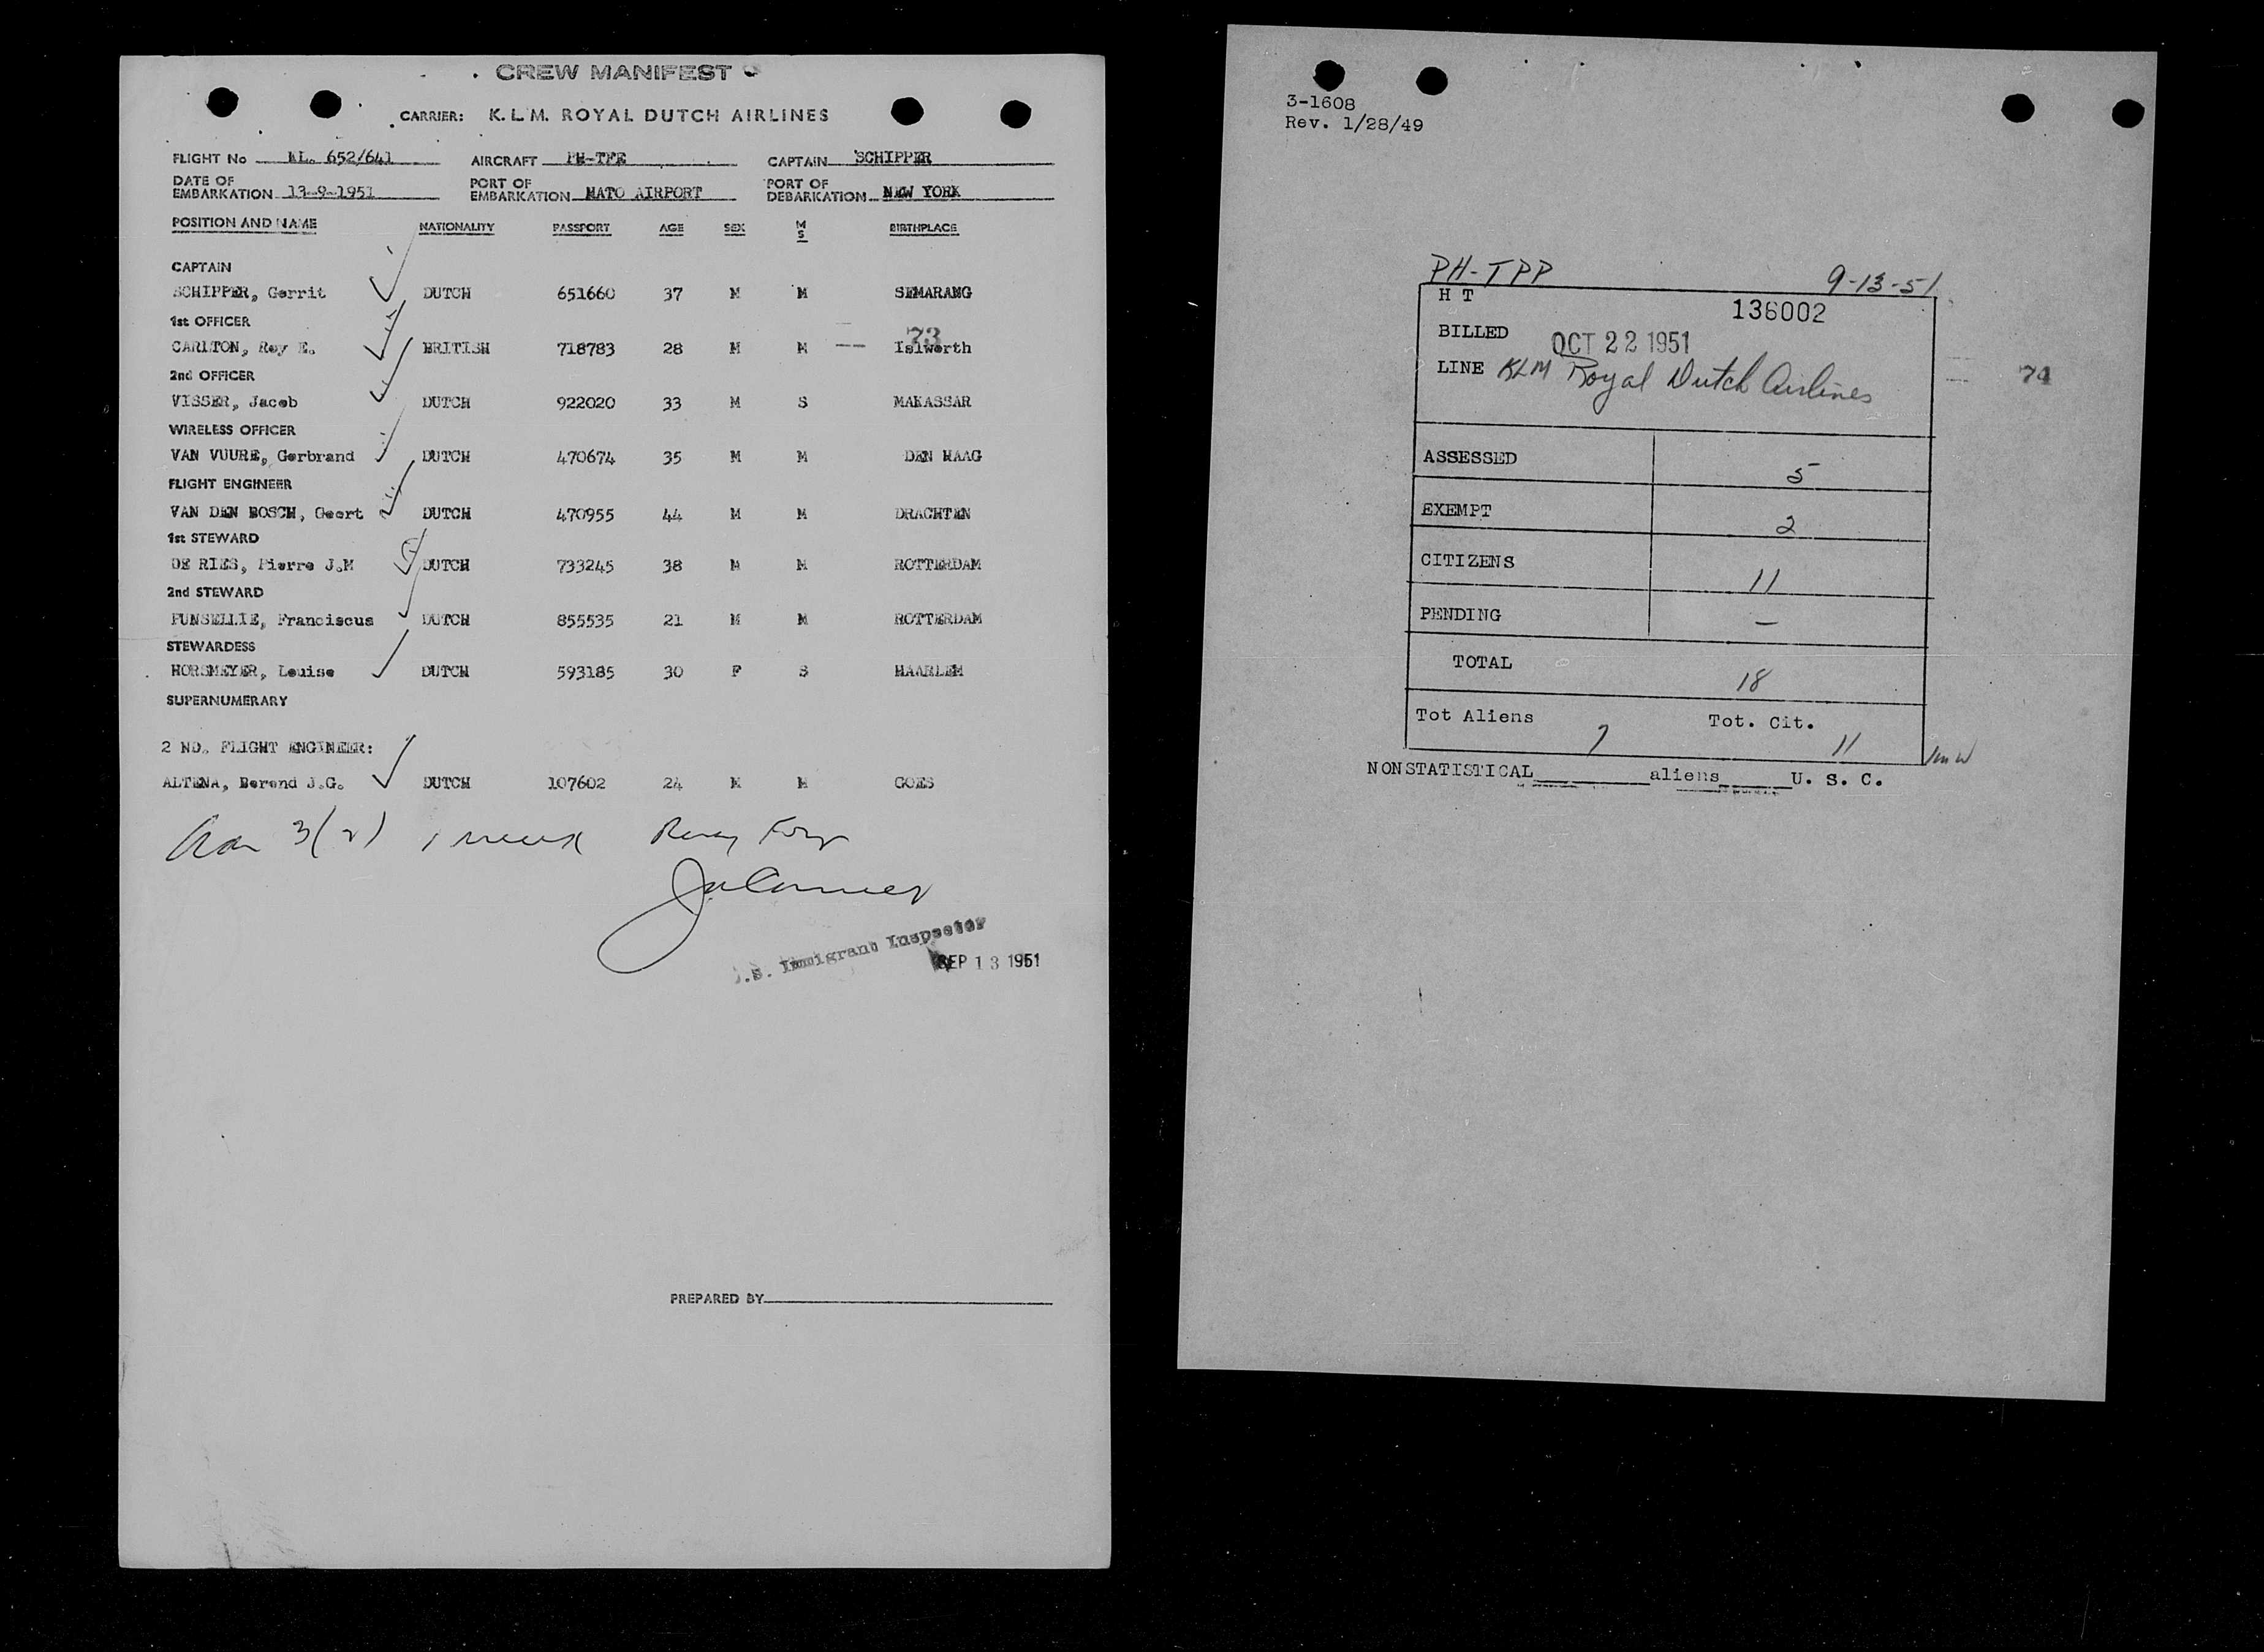 CREW MANIFEST
CARRIER: K.L.M. ROYAL DUTCH AIRLINES
FLIGHT No KL. 652/641 AIRCRAFT PH-TPP CAPTAIN SCHIPPER
DATE OF EMBARKATION 13-9-1951 PORT OF EMBARKATION HATO AIRPORT PORT OF DEBARKATION NEW YORK
POSITION AND NAME NATIONALITY PASSPORT AGE SEX M S BIRTHPLACE
CAPTAIN
SCHIPPER, Gerrit DUTCH 651660 37 M M SEMARANG
1st OFFICER
73
CARLTON, Roy E. BRITISH 718783 28 M M Islworth
2nd OFFICER
VISSER, Jacob DUTCH 922020 33 M S MAKASSAR
WIRELESS OFFICER
VAN VUURE, Gerbrand DUTCH 470674 35 M M DEN HAAG
FLIGHT ENGINEER
VAN DEN BOSCH, Geert DUTCH 470955 44 M M DRACHTEN
1st STEWARD
DE RIES, Pierre J.M DUTCH 733245 38 M M ROTTERDAM
2nd STEWARD
FUNSELLIE, Franciscus DUTCH 855535 21 M M ROTTERDAM
STEWARDESS
HORSMEYER, Louise DUTCH 593185 30 F S HAARLEM
SUPERNUMERARY
2 ND. FLIGHT ENGINEER:
ALTENA, Berend J.G. DUTCH 107602 24 M M GOES
3(2) 1 week
.S. Immigrant Inspector
SEP 13 1951
PREPARED BY
3-1608
Rev. 1/28/49
PH-TPP 9-13-51
H T 136002
BILLED OCT 22 1951
LINE KLM Royal Dutch Airlines
74
ASSESSED 5
EXEMPT 2
CITIZENS 11
PENDING —
TOTAL 18
Tot Aliens 7 Tot. Cit. 11
NONSTATISTICAL aliens U. S. C.